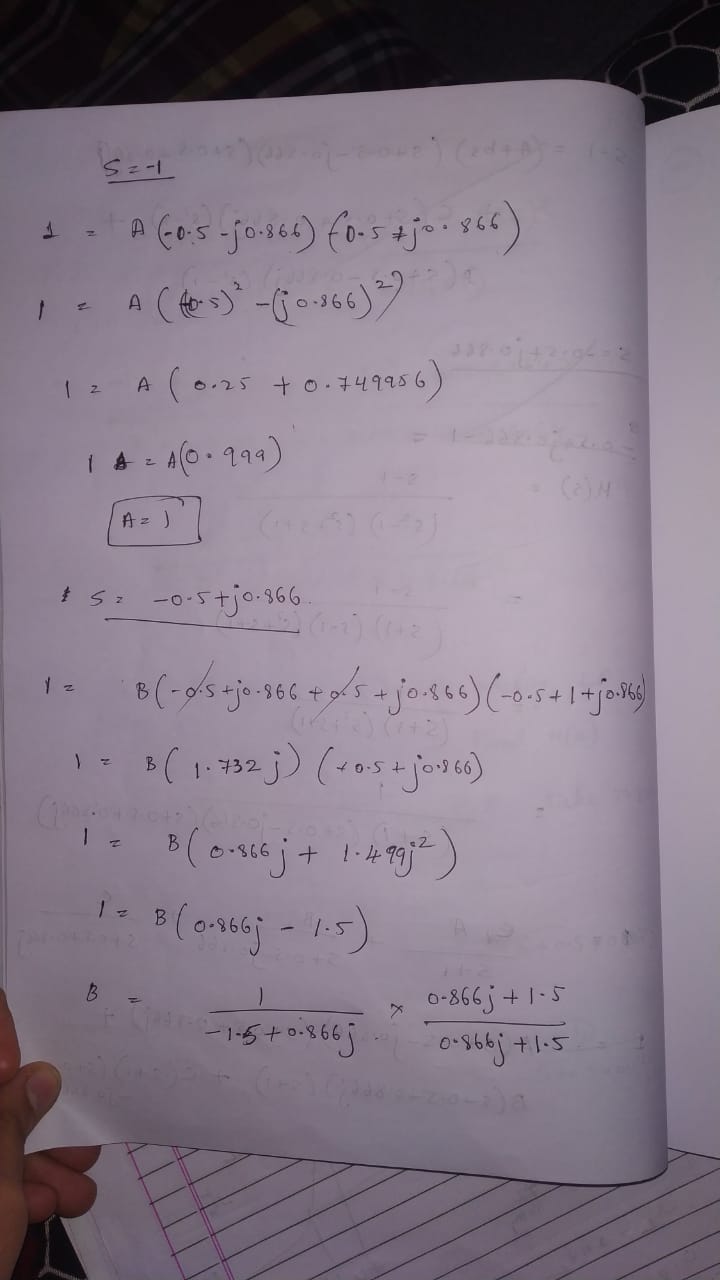 S=-1
1 = A(-0.5-j0.866)(-0.5+j0.866)
1 = A((0.5)²-(j0.866)²)
1 = A(0.25 + 0.749956)
1 = A(0.999)
A=1
S= -0.5+j0.866
1 = B(-0.5+j0.866+0.5+j0.866)(-0.5+1+j0.866)
1 = B(1.732j)(+0.5+j0.866)
1 = B(0.866j + 1.499j²)
1 = B(0.866j - 1.5)
B = 1/(-1.5+0.866j) × (0.866j+1.5)/(0.866j+1.5)